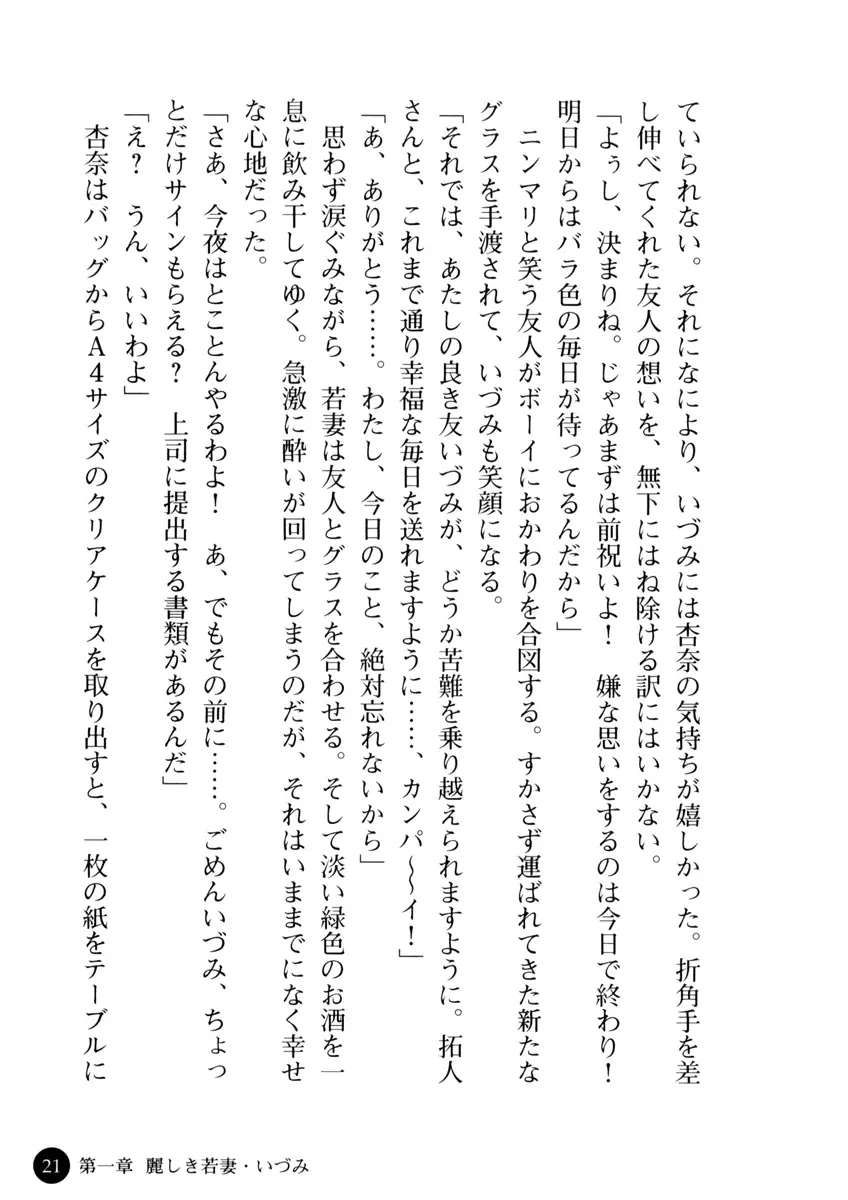 ていられない。それになにより、いづみには杏奈の気持ちが嬉しかった。折角手を差
し伸べてくれた友人の想いを、無下にはね除ける訳にはいかない。
「よぅし、決まりね。じゃあまずは前祝いよ！　嫌な思いをするのは今日で終わり！
明日からはバラ色の毎日が待ってるんだから」
　ニンマリと笑う友人がボーイにおかわりを合図する。すかさず運ばれてきた新たな
グラスを手渡されて、いづみも笑顔になる。
「それでは、あたしの良き友いづみが、どうか苦難を乗り越えられますように。拓人
さんと、これまで通り幸福な毎日を送れますように……、カンパ〜〜イ！」
「あ、ありがとう……。わたし、今日のこと、絶対忘れないから」
　思わず涙ぐみながら、若妻は友人とグラスを合わせる。そして淡い緑色のお酒を一
息に飲み干してゆく。急激に酔いが回ってしまうのだが、それはいままでになく幸せ
な心地だった。
「さあ、今夜はとことんやるわよ！　あ、でもその前に……。ごめんいづみ、ちょっ
とだけサインもらえる？　上司に提出する書類があるんだ」
「え？　うん、いいわよ」
　杏奈はバッグからＡ４サイズのクリアケースを取り出すと、一枚の紙をテーブルに
21 第一章 麗しき若妻・いづみ